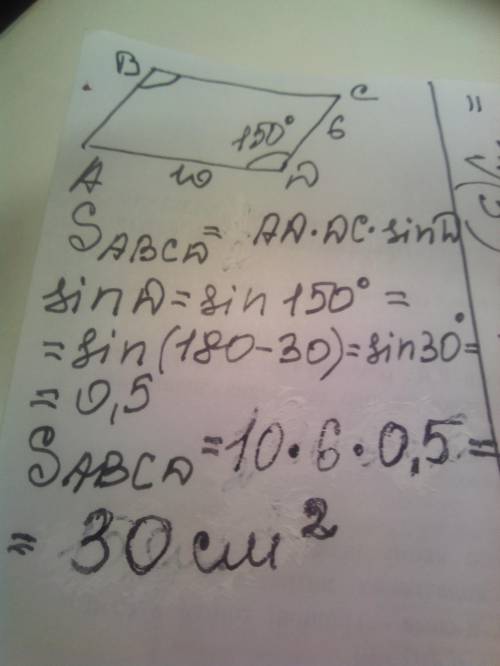 B
C
150°
6
A
10
D
S ABCD = AD·DC·sinD
sinD = sin150° =
= sin(180-30) = sin30° =
= 0,5
S ABCD = 10·6·0,5 =
= 30 см²